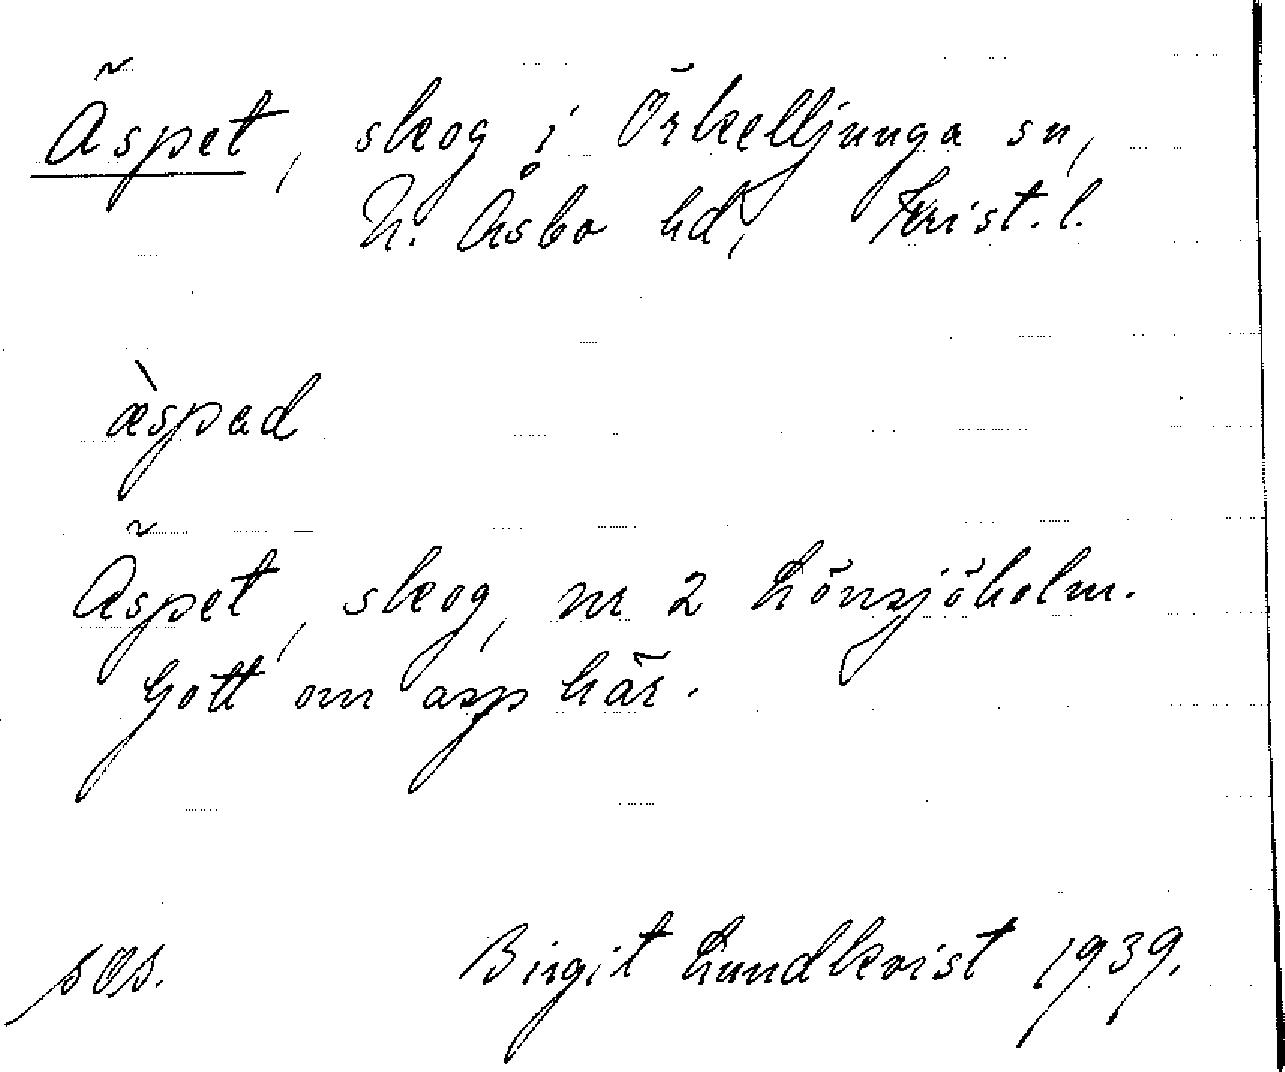 Äspet, skog i Örkelljunga sn,
N. Åsbo hd, Krist. l.
æ̀spad
Äspet, skog, nr 2 Lönsjöholm.
Gott om asp här.
Birgit Lundkvist 1939.